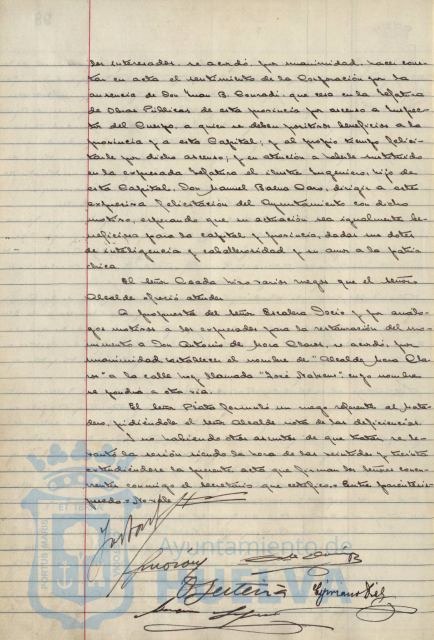 los interesados, se acordó, por unanimidad, hacer cons-
tar en acta el sentimiento de la Corporación por la
ausencia de Don Juan B. Conradi, que cesa en la Jefatura
de Obras Públicas de esta provincia por ascenso a Inspec-
tor del Cuerpo, a quien se deben positivos beneficios a la
provincia y a esta Capital; y al propio tiempo felici-
tarle por dicho ascenso; y en atención a haberle sustituido
en la expresada Jefatura el ilustre Ingeniero, hijo de
esta Capital, Don Manuel dirigir a este
expresiva felicitación del Ayuntamiento con dicho
motivo, esperando que su actuación sea igualmente be-
neficiosa para la capital y provincia, dadas sus dotes
de inteligencia y caballerosidad y su amor a la patria
chica.
El señor hizo varios ruegos que el señor
Alcalde ofreció atender.
A propuesta del señor y por análo-
gos motivos a los expresados para la restauración del mo-
numento a Don Antonio de Mora Claros, se acordó, por
unanimidad, restablecer el nombre de "Alcalde Mora Cla-
ros" a la calle hoy llamada "José Nakens", cuyo nombre
se pondrá a otra vía.
El señor Prieto formuló un ruego referente al Mata-
dero, pidiéndole el señor Alcalde nota de las deficiencias.
Y no habiendo otros asuntos de que tratar se le-
vantó la sesión siendo la hora de las veintidós y treinta
extendiéndose la presente acta que firman los señores concu-
rrentes conmigo el Secretario que certifico.= Entre paréntesis:
Ayuntamiento de
HUELVA